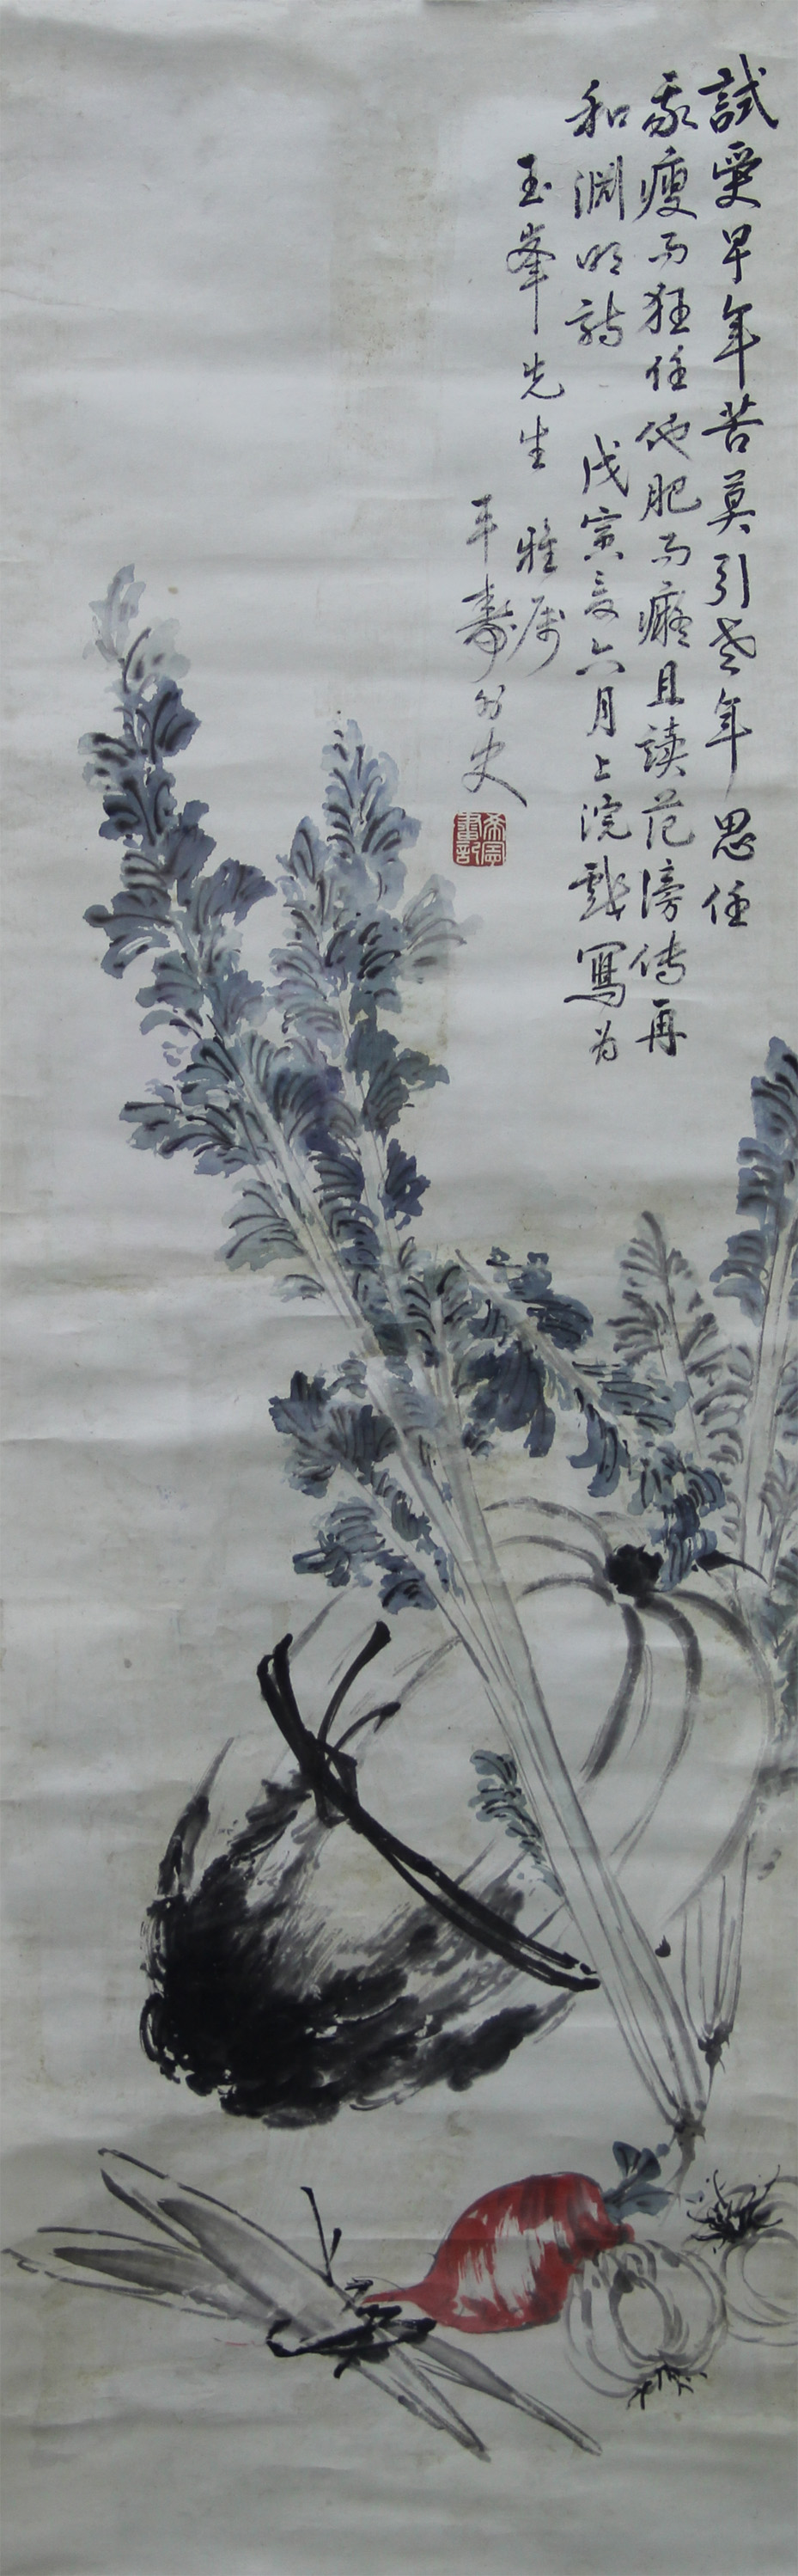 試受早年苦莫引老年思任
我瘦而狂任他肥而癡且讀范滂傳再
和淵明詩 戊寅夏六月上浣戲寫为
玉峯先生 雅属
平壽外史